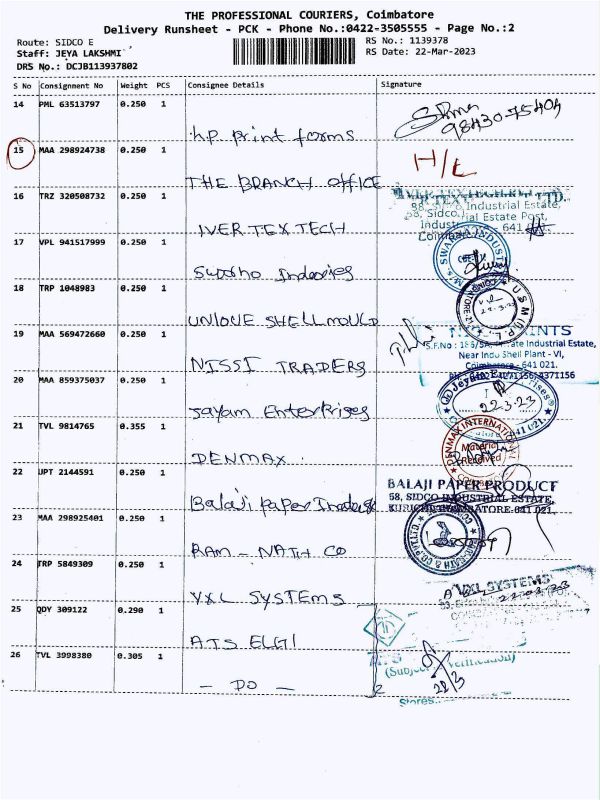 THE PROFESSIONAL COURIERS, Coimbatore
Delivery Runsheet - PCK - Phone No.:0422-3505555 - Page No.:2
Route: SIDCO E
RS No.: 1139378
Staff: JEYA LAKSHMI
RS Date: 22-Mar-2023
DRS No.: DCJB113937802
S No Consignment No Weight PCS Consignee Details Signature
14 PML 63513797 0.250 1
98430-75404
hp print forms
15 MAA 298924738 0.250 1
H/L
THE BRANCH OFFICE
16 TRZ 320508732 0.250 1
Industrial Estate,
Industrial Estate Post,
641 021
IVER TEX TECH
17 VPL 941517999 0.250 1
M/s. SWARNA INDUST
18 TRP 1048983 0.250 1
UNIQUE SHELL MOULD
19 MAA 569472660 0.250 1
Private Industrial Estate,
Near Indo Shell Plant - VI,
Coimbatore - 641 021.
NISSI TRADERS
20 MAA 859375037 0.250 1
22-3-23
Jayam Enterprises
21 TVL 9814765 0.355 1
DENMAX INTERNATIONAL
Material
Received
DENMAX
22 UPT 2144591 0.250 1
BALAJI PAPER PRODUCT
58, SIDCO INDUSTRIAL ESTATE,
KURICHI, COIMBATORE-641 021.
Balaji Paper
23 MAA 298925401 0.250 1
RAM - NATH CO
24 TRP 5849309 0.250 1
VXL SYSTEMS
VXL SYSTEMS
25 QDY 309122 0.290 1
ATS ELGI
26 TVL 3998380 0.305 1
(Subject verification)
22/3
- DO -
Stores.